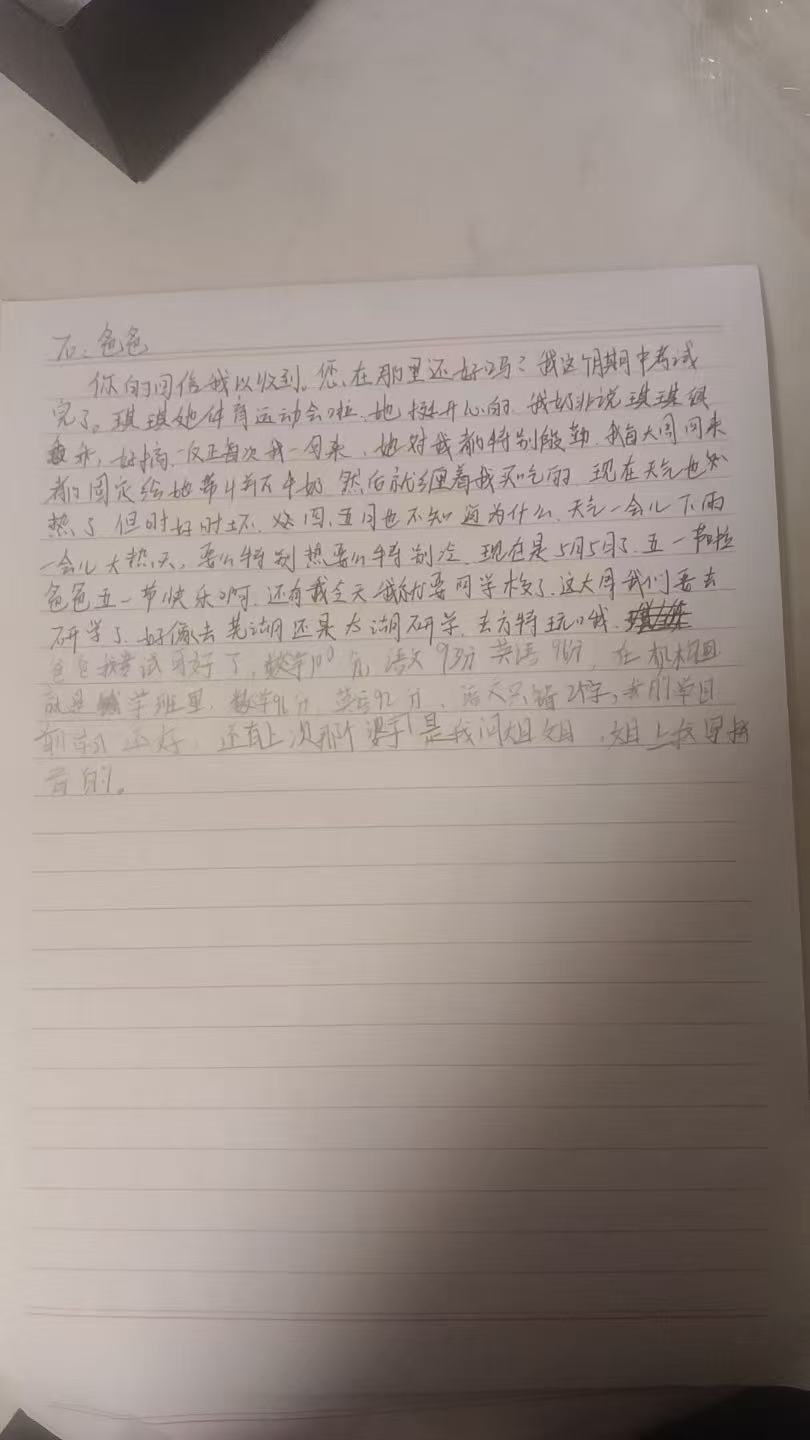 石:爸爸
你的回信我以收到。您在那里还好吗?我这个月期中考试
完了。琪琪她体育运动会啦、她挺开心的 我奶非说琪琪很
好搞、反正每次我一回来、她对我都特别殷勤、我每大周回来
都固定给她带 牛奶 然后就缠着我买吃的 现在天气也
热了 但时好时坏、 四、五月也不知道为什么、天气一会儿下雨
一会儿大热天、要么特别热要么特别冷、现在是5月5日了、五一节啦
爸爸五一节快乐啊、还有我今天 我就要回学校了、这大周我们要去
研学了、好像去芜湖还是太湖研学、去方特玩哦、
爸爸我考试可好了、数学100分 语文93分 英语 分、在机构
就是 学班里、数学 分、英语92分、语文只错2个字,我的学习
目前 还好、还有上次那个 是我问姐姐、姐
音的。